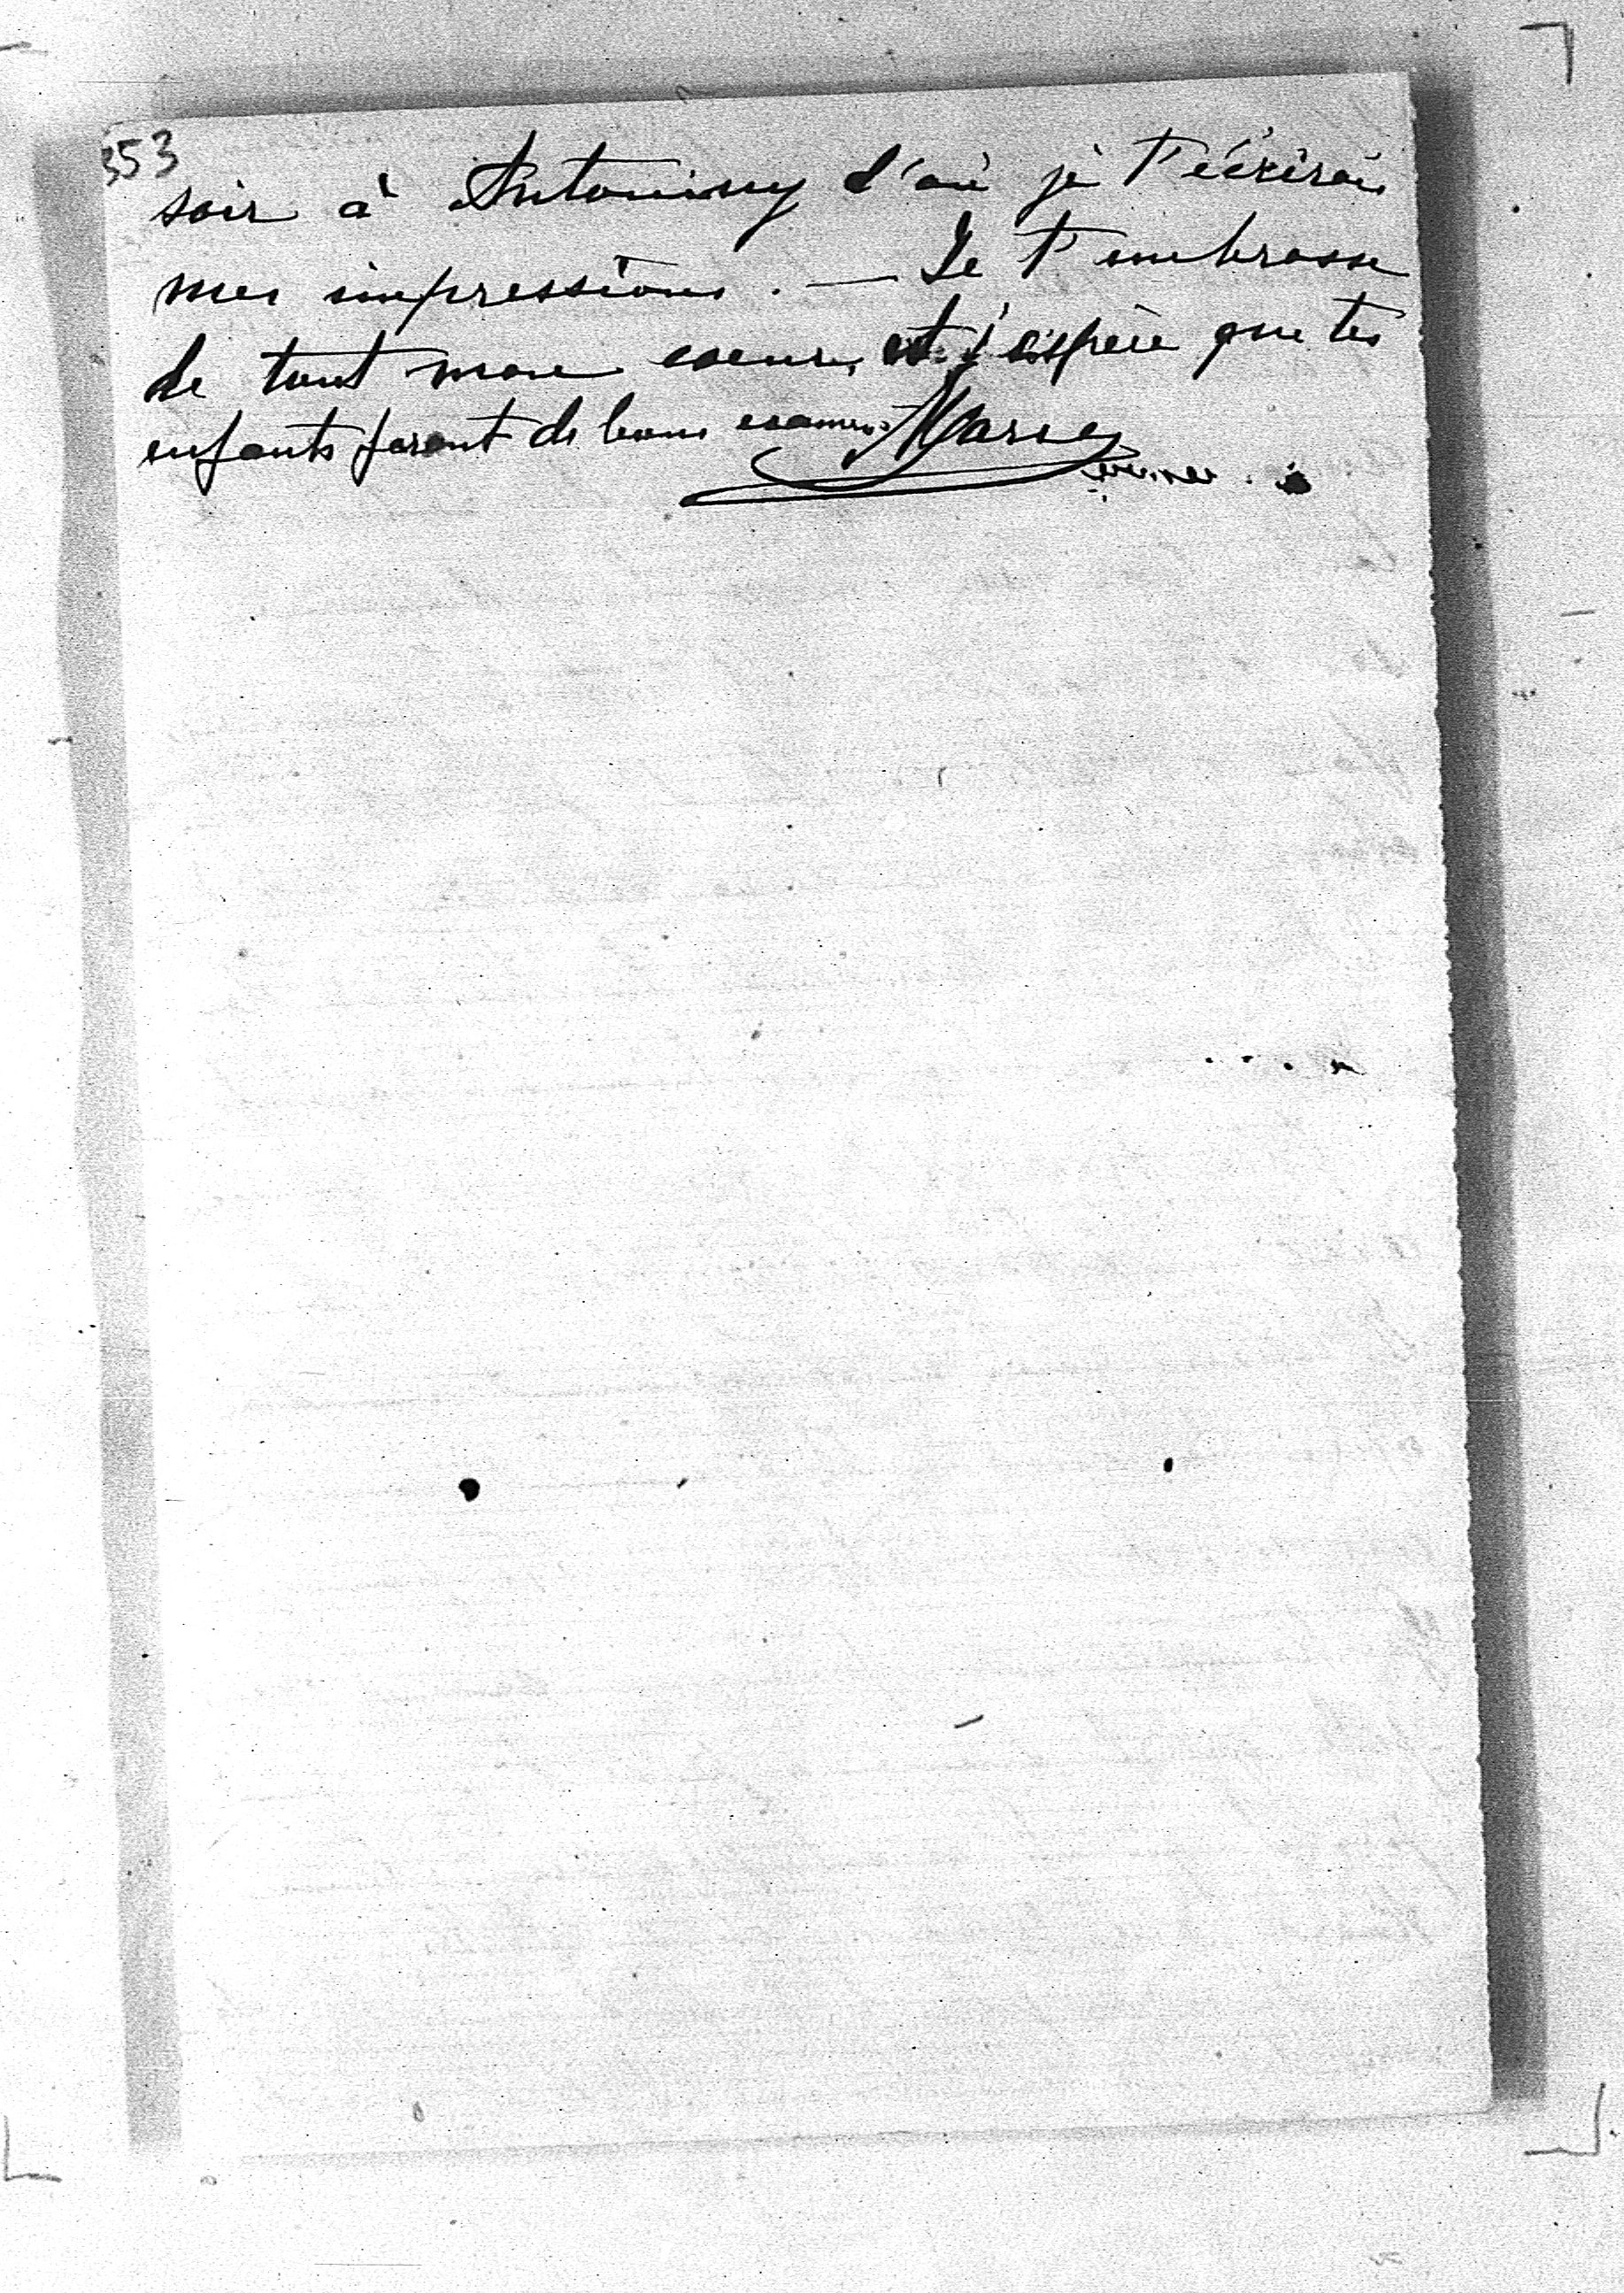 353
soir à Antoniny d'où je t'écrirai
mes impressions. — Je t'embrasse
de tout mon coeur, et j'espère que tes
enfants feront de bons examens. Marie